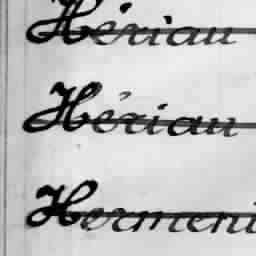 Hériau
Hériau
Hermeni